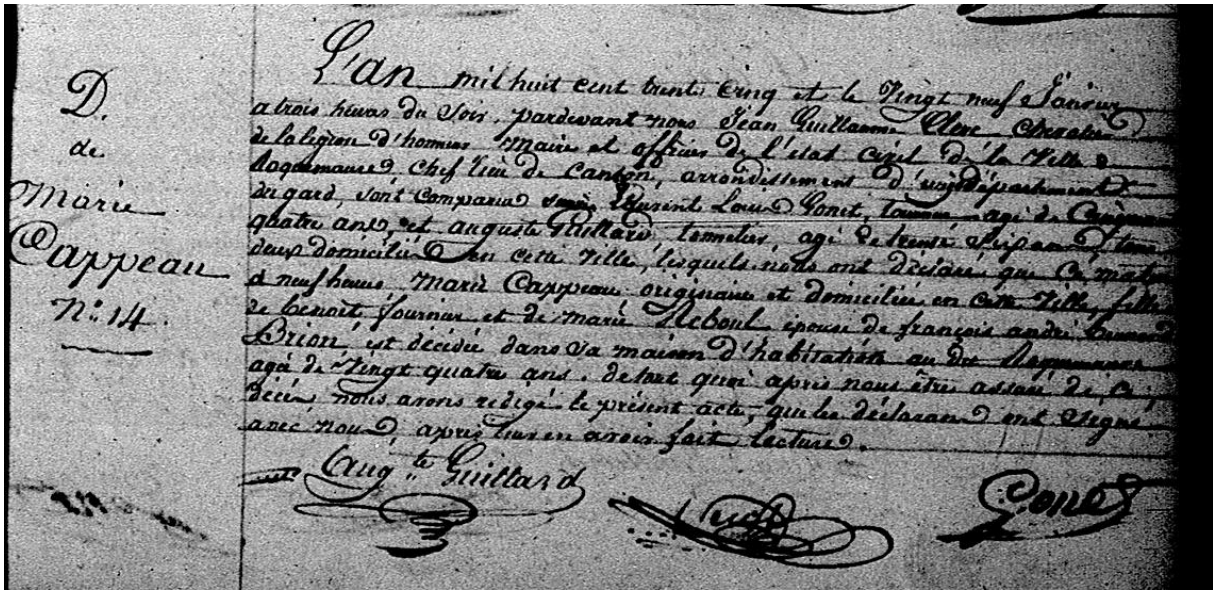 D.
de
Marie
Cappeau
N.º 14.
L'an mil huit cent trente cinq et le Vingt neuf Janvier
a trois heures du soir, pardevant nous Jean Guillaume Clerc chevalier
de la légion d'honneur Maire et officier de l'état civil de la Ville de
Roquemaure chef lieu de Canton, arrondissement d'uzès département
du gard, sont comparus Laurent Louis Gonet, agé de
quatre ans, et auguste Guillard, tonnelier, agé de trente six ans, tous
deux domiciliés en cette Ville, lesquels nous ont déclaré que ce matin
a neuf heures Marie Cappeau originaire et domiciliée en cette Ville, fille
de benoit, fournier et de marie Reboul épouse de françois andré
Brion, est décédée dans sa maison d'habitation au dit Roquemaure
agée de Vingt quatre ans. de tout quoi après nous être assuré de ce
décès nous avons redigé le présent acte, que les déclarans ont signé
avec nous, après leur en avoir fait lecture.
Aug.te Guillard
Clerc
Gonet